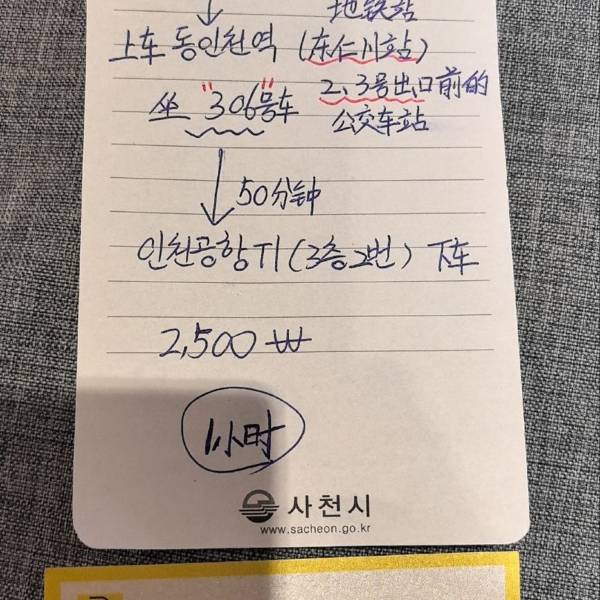 地铁站
上车 동인천역 (东仁川站)
坐 "306"号车 2、3号出口前的
公交车站
50分钟
인천공항 T1 (3층 2번) 下车
2,500 ₩
1小时
사천시
www.sacheon.go.kr